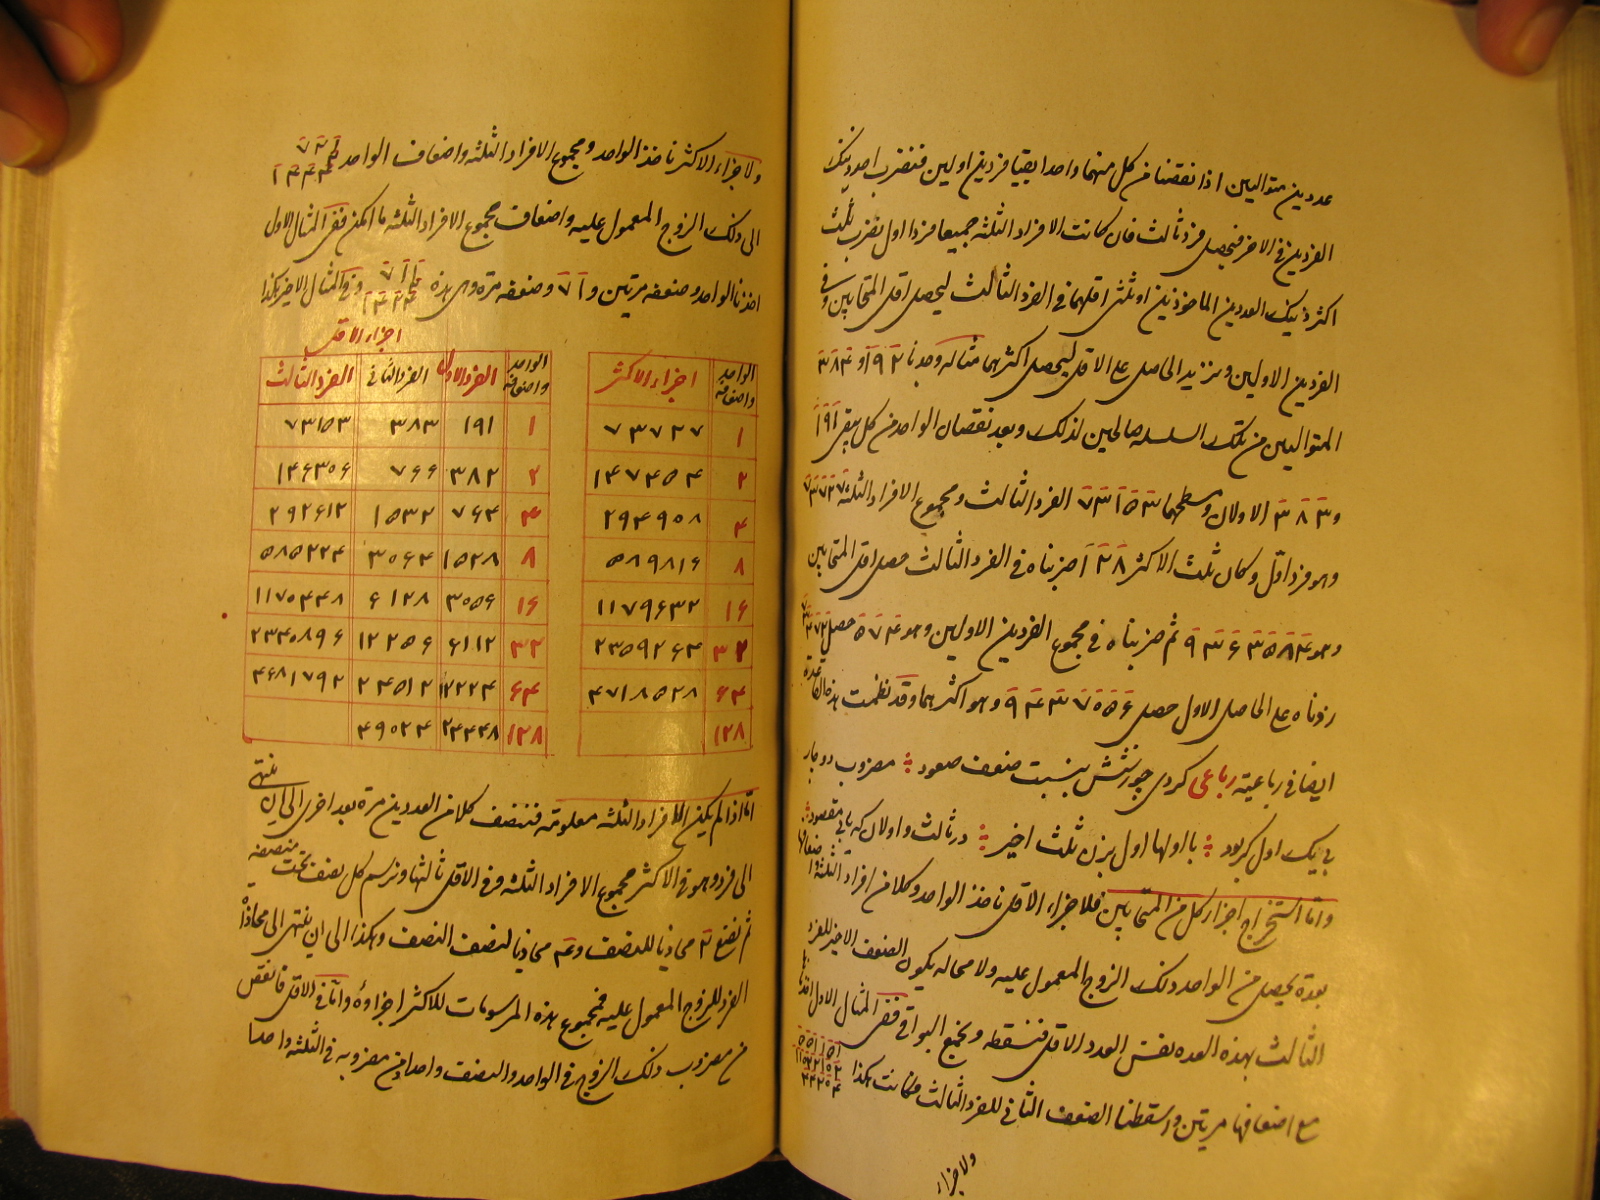 عددين متواليين اذا نقصنا من كل منهما واحدا بقيا فردين اولين فنضرب احد ذينك
الفردين فى الاخر فيحصل فرد ثالث فان كانت الافراد الثلثة جميعا فردا اول نضرب ثلث
اكثر ذينك العددين الماخوذين او ثلثى اقلهما فى الفرد الثالث ليحصل اقل المتحابين وفى
الفردين الاولين ونزيد الحاصل على الاقل ليحصل اكثرهما مثاله وجدنا ١٩٢ و ٣٨٤
المتواليين من تلك السلسلة صالحين لذلك وبعد نقصان الواحد من كل يبقى ١٩١
و ٣٨٣ الاولان ومسطحهما ٧٣١٥٣ الفرد الثالث ومجموع الافراد الثلثة ٧٣٧٢٧
وهو فرد اول وكان ثلث الاكثر ١٢٨ ضربناه فى الفرد الثالث حصل اقل المتحابين
وهو ٩٣٦٣٥٨٤ ثم ضربناه فى مجموع الفردين الاولين وهو ٥٧٤ حصل ٧٣٤٧٢
زدناه على الحاصل الاول حصل ٩٤٣٧٠٥٦ وهو اكثرهما وقد نظمت هذه القاعدة
ايضا فى رباعية رباعى كردى چو زشش بنسبت ضعف صعود ⁘ مضروب دو بار
بى يك اول كر بود ⁘ با اولها اول بزن ثلث اخير ⁘ در ثالث و اولان كه يابى مقصود
واما استخراج اجزاء كل من المتحابين فلاجزاء الاقل ناخذ الواحد وكلا من افراد الثلثة واضعافها
بعدة يحصل من الواحد ذلك الزوج المعمول عليه ولا محالة يكون الضعف الاخير للفرد
الثالث بهذه العدة نفس العدد الاقل فنسقطه ونجمع البواقى ففى المثال الاول اخذناها
مع اضعافها مرتين واسقطنا الضعف الثانى للفرد الثالث فكانت هكذا
ولاجزاء
ولاجزاء الاكثر ناخذ الواحد ومجموع الافراد الثلثة واضعاف الواحد
الى ذلك الزوج المعمول عليه واضعاف مجموع الافراد الثلثة ما امكن ففى المثال الاول
اخذنا الواحد وضعفه مرتين و ٧١ وضعفه مرة وهى هذه وفى المثال الاخير هكذا
اجزاء الاقل
الواحد واضعافه اجزاء الاكثر
١ ٧٣٧٢٧
٢ ١٤٧٤٥٤
٤ ٢٩٤٩٠٨
٨ ٥٨٩٨١٦
١٦ ١١٧٩٦٣٢
٣٢ ٢٣٥٩٢٦٤
٦٤ ٤٧١٨٥٢٨
١٢٨
الواحد واضعافه الفرد الاول الفرد الثانى الفرد الثالث
١ ١٩١ ٣٨٣ ٧٣١٥٣
٢ ٣٨٢ ٧٦٦ ١٤٦٣٠٦
٤ ٧٦٤ ١٥٣٢ ٢٩٢٦١٢
٨ ١٥٢٨ ٣٠٦٤ ٥٨٥٢٢٤
١٦ ٣٠٥٦ ٦١٢٨ ١١٧٠٤٤٨
٣٢ ٦١١٢ ١٢٢٥٦ ٢٣٤٠٨٩٦
٦٤ ١٢٢٢٤ ٢٤٥١٢ ٤٦٨١٧٩٢
١٢٨ ٢٤٤٤٨ ٤٩٠٢٤
اما اذا لم يكن الافراد الثلثة معلومة فننصف كلا من العددين مرة بعد اخرى الى ان ينتهى
الى فرد وهو فى الاكثر مجموع الافراد الثلثة وفى الاقل ثالثها ونرسم كل نصف تحت منصفه
ثم نضع ٢ محاذيا للنصف و ٤ محاذيا لنصف النصف وهكذا الى ان ينتهى الى محاذاة
الفرد للزوج المعمول عليه فمجموع هذه المرسومات للاكثر اجزاؤه واما فى الاقل فانقص
من مضروب ذلك الزوج فى الواحد والنصف واحدا ومن مضروبه فى الثلثة واحدا